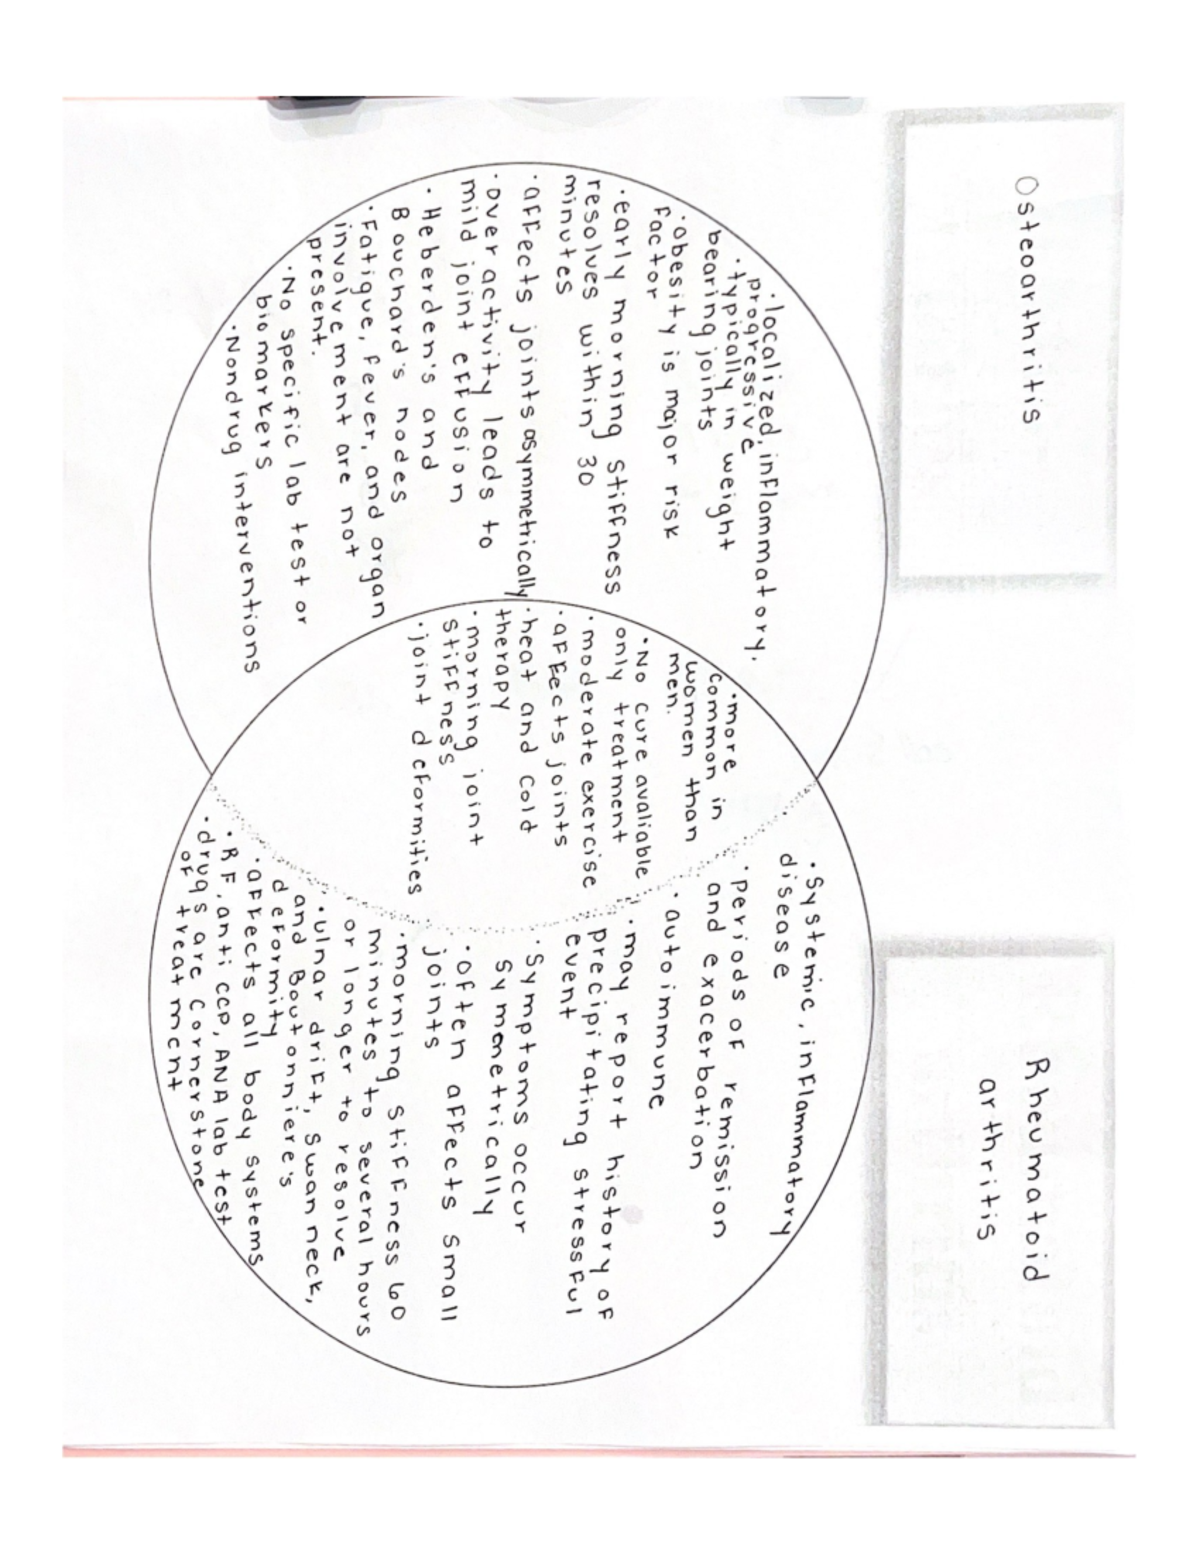 Osteoarthritis
• localized, inflammatory,
progressive
• typically in weight
bearing joints
• obesity is major risk
factor
• early morning stiffness
resolves within 30
minutes
• affects joints asymmetrically
• over activity leads to
mild joint effusion
• Heberden's and
Bouchard's nodes
• Fatigue, fever, and organ
involvement are not
present.
• No specific lab test or
biomarkers
• Nondrug interventions
• more
common in
women than
men.
• No cure avaliable
only treatment
• moderate exercise
• affects joints
• heat and cold
therapy
• morning joint
stiffness
• joint deformities
Rheumatoid
arthritis
• Systemic, inflammatory
disease
• periods of remission
and exacerbation
• autoimmune
• may report history of
precipitating stressful
event
• Symptoms occur
symmetrically
• often affects small
joints
• morning stiffness 60
minutes to several hours
or longer to resolve
• ulnar drift, swan neck,
and Boutonniere's
deformity
• affects all body systems
• RF, anti CCP, ANA lab test
• drugs are cornerstone
of treatment